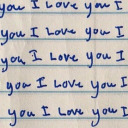 you I Love you I
you I Love you I
you I Love you I
you I Love you I
you I Love you I